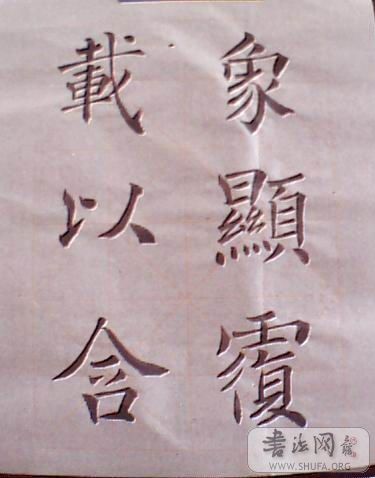 象顯覆
載以含
書法网
WWW.SHUFA.ORG